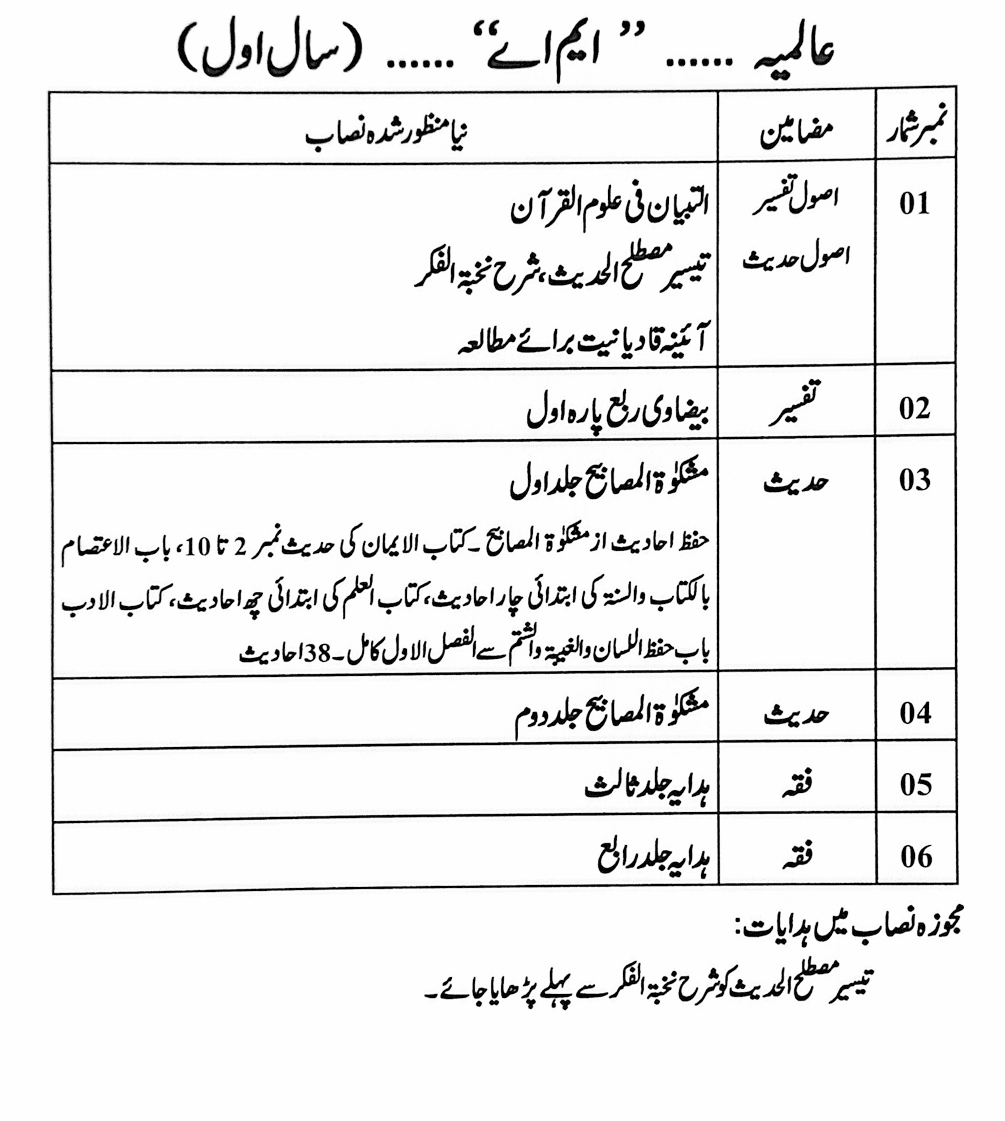 عالمیہ ...... ”ایم اے“ ...... (سال اول)
نمبر شمار مضامین نیا منظور شدہ نصاب
01 اصول تفسیر التبیان فی علوم القرآن
اصول حدیث تیسیر مصطلح الحدیث، شرح نخبۃ الفکر
آئینہ قادیانیت برائے مطالعہ
02 تفسیر بیضاوی ربع پارہ اول
03 حدیث مشکوٰۃ المصابیح جلد اول
حفظ احادیث از مشکوٰۃ المصابیح ۔ کتاب الایمان کی حدیث نمبر 2 تا 10، باب الاعتصام
بالکتاب والسنۃ کی ابتدائی چار احادیث، کتاب العلم کی ابتدائی چھ احادیث، کتاب الادب
باب حفظ اللسان والغیبۃ والشتم سے الفصل الاول کامل ۔ 38 احادیث
04 حدیث مشکوٰۃ المصابیح جلد دوم
05 فقہ ہدایہ جلد ثالث
06 فقہ ہدایہ جلد رابع
مجوزہ نصاب میں ہدایات:
تیسیر مصطلح الحدیث کو شرح نخبۃ الفکر سے پہلے پڑھایا جائے ۔